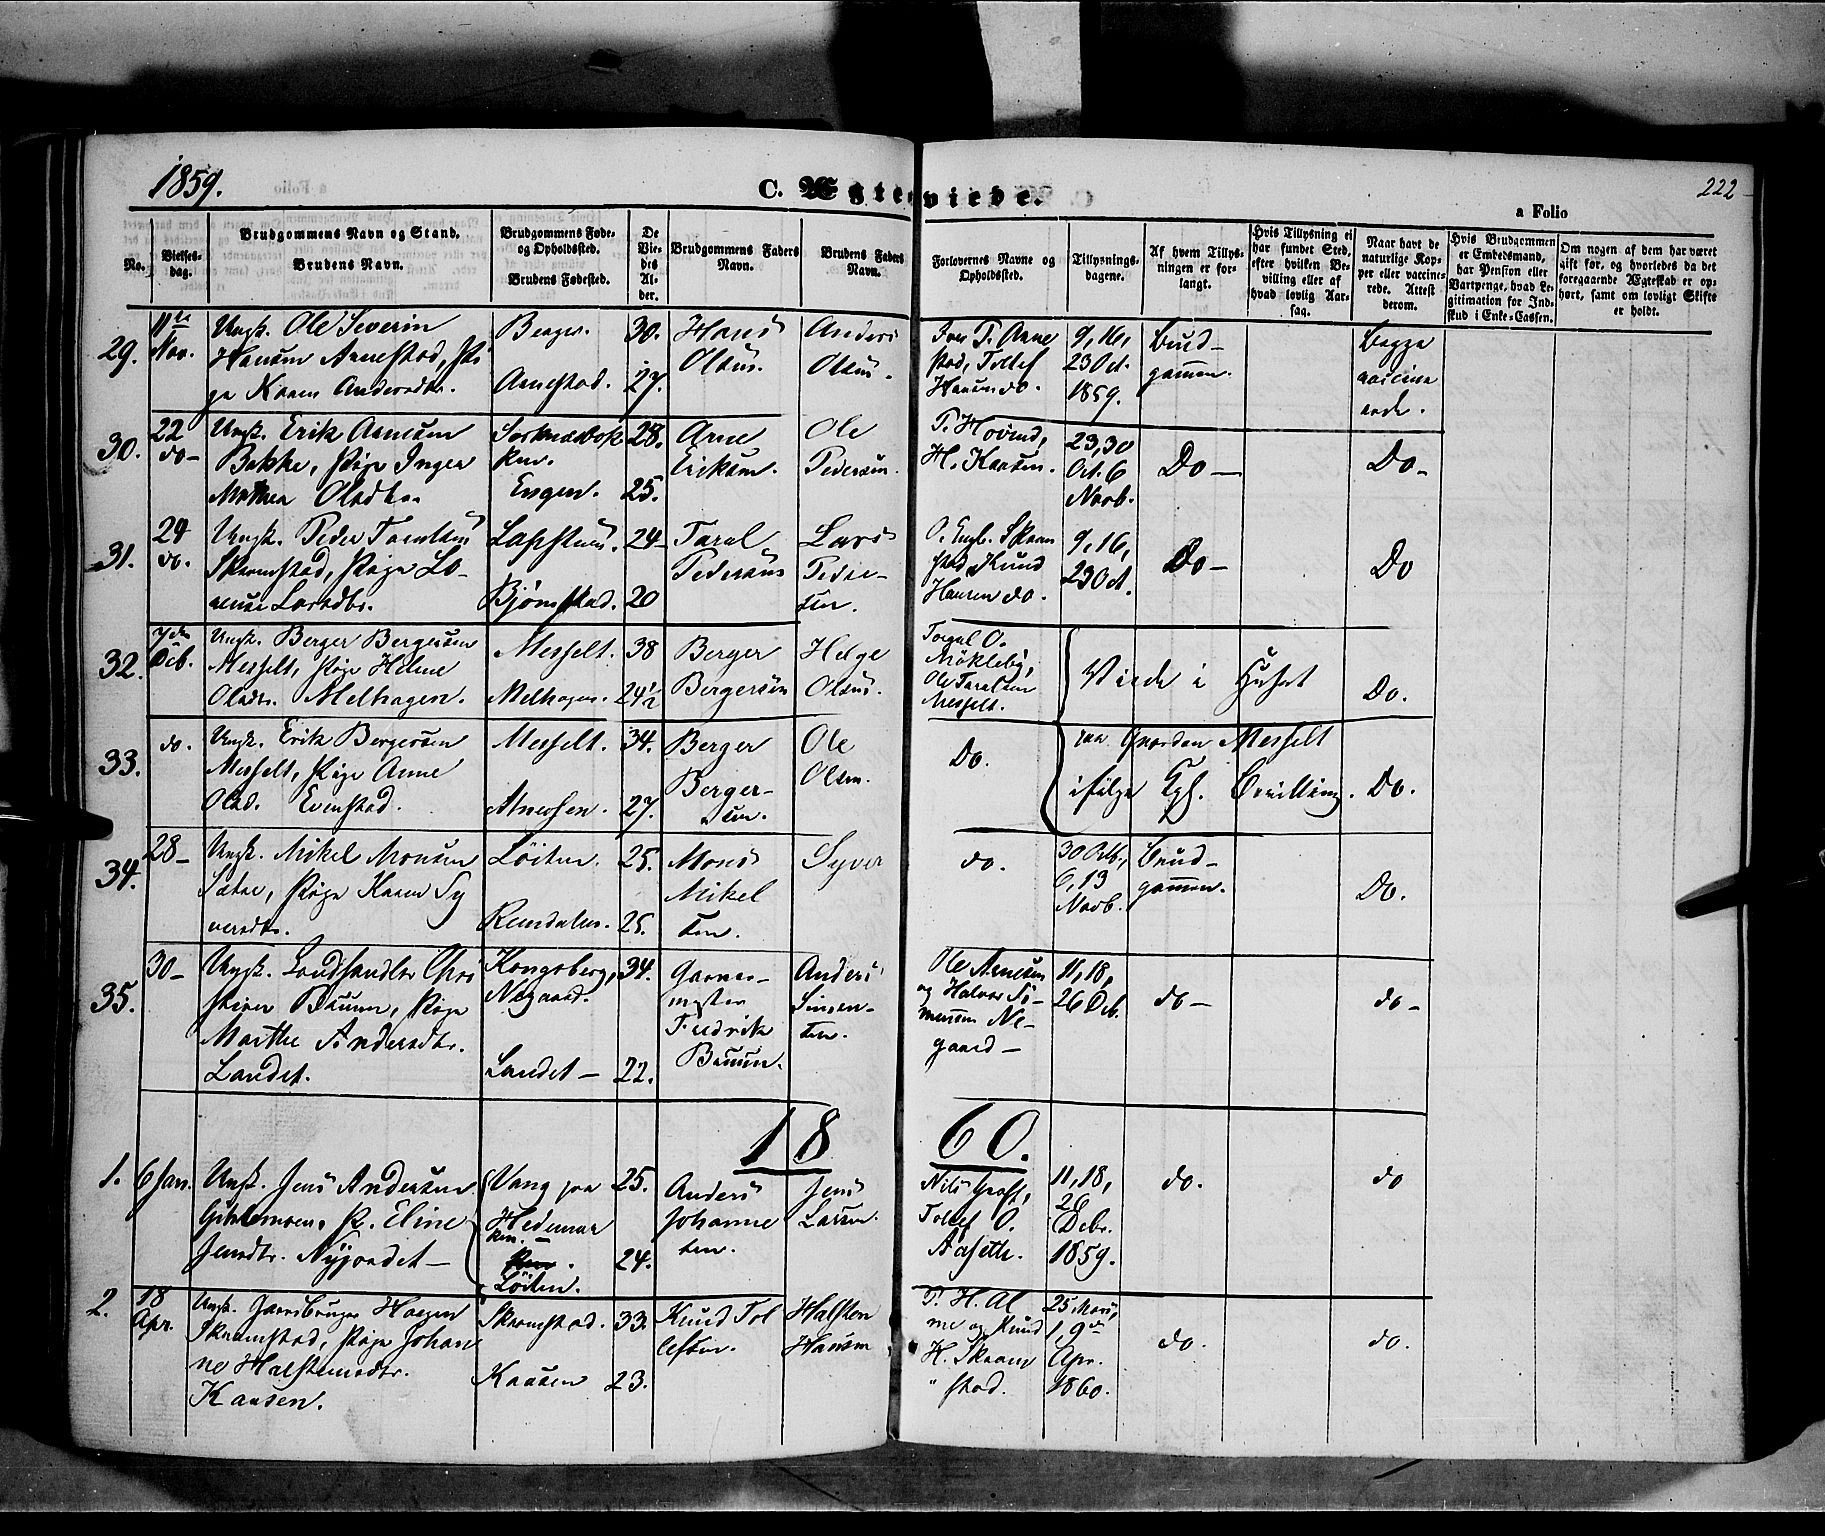 1859.
C. Ægteviede.
a Folio
222
No.
Vielses-
dag.
Brudgommens Navn og Stand.
Brudens Navn.
Brudgommens Føde-
og Opholdssted.
Brudens Fødested.
De
Vie-
des
Al-
der.
Brudgommens Faders
Navn.
Brudens Faders
Navn.
Forlovernes Navne og
Opholdssted.
Tillysnings-
dagene.
Af hvem Tillys-
ningen er for-
langt.
Hvis Tillysning ei
har fundet Sted,
efter hvilken Be-
villing eller af
hvad lovlig Aar-
sag.
Naar havt de
naturlige Kop-
per eller vaccine-
rede. Attest
derom.
Hvis Brudgommen
er Embedsmand,
har Pension eller
Vartpenge, hvad Le-
gitimation for Ind-
skud i Enke-Cassen.
Om nogen af dem har været
gift før, og hvorledes da det
foregaaende Ægteskab er op-
hørt, samt om lovligt Skifte
er holdt.
29.
11te
Nov.
Ungk. Ole Severin
Hansen Arnestad, Pi
ge Karen Andersdtr.
Berger.
Arnestad.
30.
27.
Hans
Olsen.
Anders
Olsen.
Iver P. Arne
stad, Tollef
Hansen do.
9, 16,
23 Oct.
1859.
Brud-
gommen.
Begge
vaccine
rede.
30.
22
do-
Ungk. Erik Arnesen
Bakke, Pige Inger
Mathea Olsdtr.
Engen.
28.
25.
Arne
Eriksen.
Ole
Pedersen.
P. Hovind,
H. Karsen.
23, 30
Oct. 6
Novb.
Do-
Do-
31.
24
do.
Ungk. Peder Taralsen
Skramstad, Pige Lo-
rense Larsdtr.
Bjørnstad.
24-
20
Taral
Pedersens
Lars
Peder-
sen.
O. Engb. Skram
stad, Knud
Hansen do.
9, 16,
23 Oct.
Do-
Do
32.
7de
Deb.
Ungk. Berger Bergersen
Messelt, Pige Helene
Olsdtr. Melhagen.
Messelt.
Melhagen.
38
24½
Berger
Bergersen
Helge
Olsen.
O.
Møkleby,
Ole Taralsen
Messelt.
Viede i Huset
Do.
33.
do.
Ungk. Erik Bergersen
Messelt, Pige Anne
Olsd. Evenstad.
Messelt.
34.
27.
Berger
Berger-
sen.
Ole
Olsen.
Do.
paa Gaarden Messelt
ifølge Kgl. Bevilling.
Do.
34.
28-
Ungk. Mikel Monsen
Sætre, Pige Karen Sy
versdtr.
Löiten.
Rendalen.
25.
25.
Mons
Mikel
sen.
Syver
do.
30 Octb.,
6, 13
Novb.
Brud-
gommen.
Do.
35.
30-
Ungk. Landhandler Chri
stian Baumn, Pige
Marthe Andersdtr.
Landet.
Kongsberg,
Negaard.
Landet-
34.
22.
Garver-
mester
Fredrik
Baumn.
Anders
Simen-
sen.
Ole Arnesen
og Halvor Si-
mensen Ne-
gaard-
11, 18,
26 Deb.
do-
do-
1860.
1.
6 Jan.
Ungk. Jens Andersen
P. Eline
Jensdtr. Nyjordet-
Vang paa
Hedemar
ken. -
Löiten.
25.
24.
Anders
Johanne
sen.
Jens
Larsen.
Nils Groft,
Tollef O.
Aaseth.
11, 18,
26
Debr.
1859.
do.
do
2.
18
Apr.
Ungk. Gaardbruger Haagen
Skramstad, Pige Johan
ne Halstensdtr.
Kaasen.
Skramstad.
Kaasen
33.
23.
Knud Tol
lefsen.
Halsten
Hansen
P. H. Al
me og Knud
H. Skram
" stad.
25 Marts,
1, 9de
Apr.
1860.
do.
do.